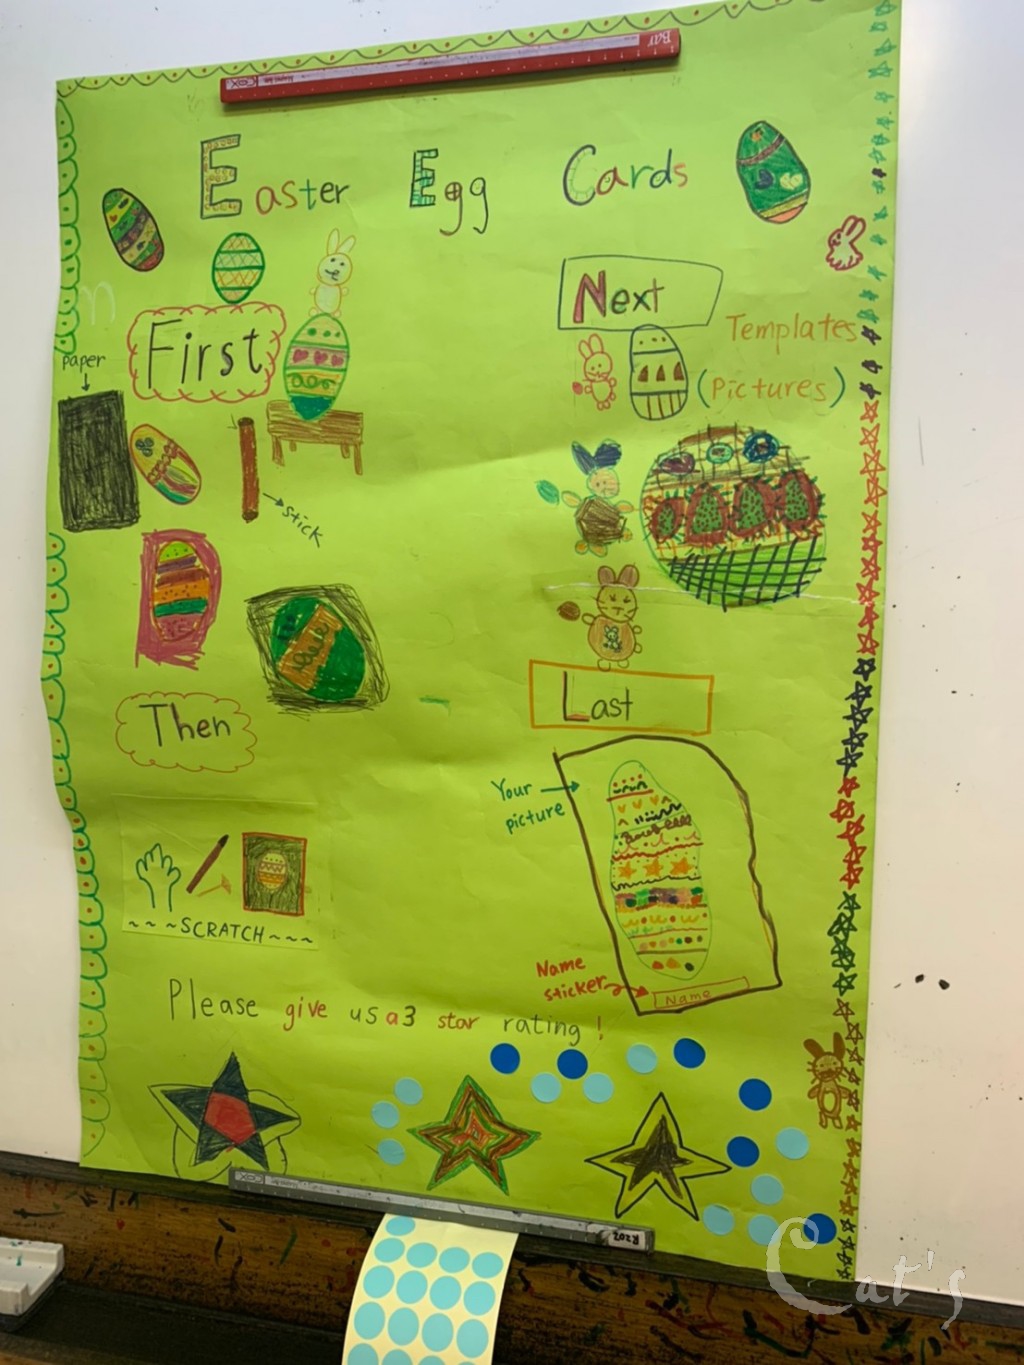 Easter Egg Cards
First
paper
stick
Then
SCRATCH
Next
Templates
(Pictures)
Last
Your
picture
Name
sticker
Name
Please give us a 3 star rating!
KCX
Bar
KCX
R202
Cat's